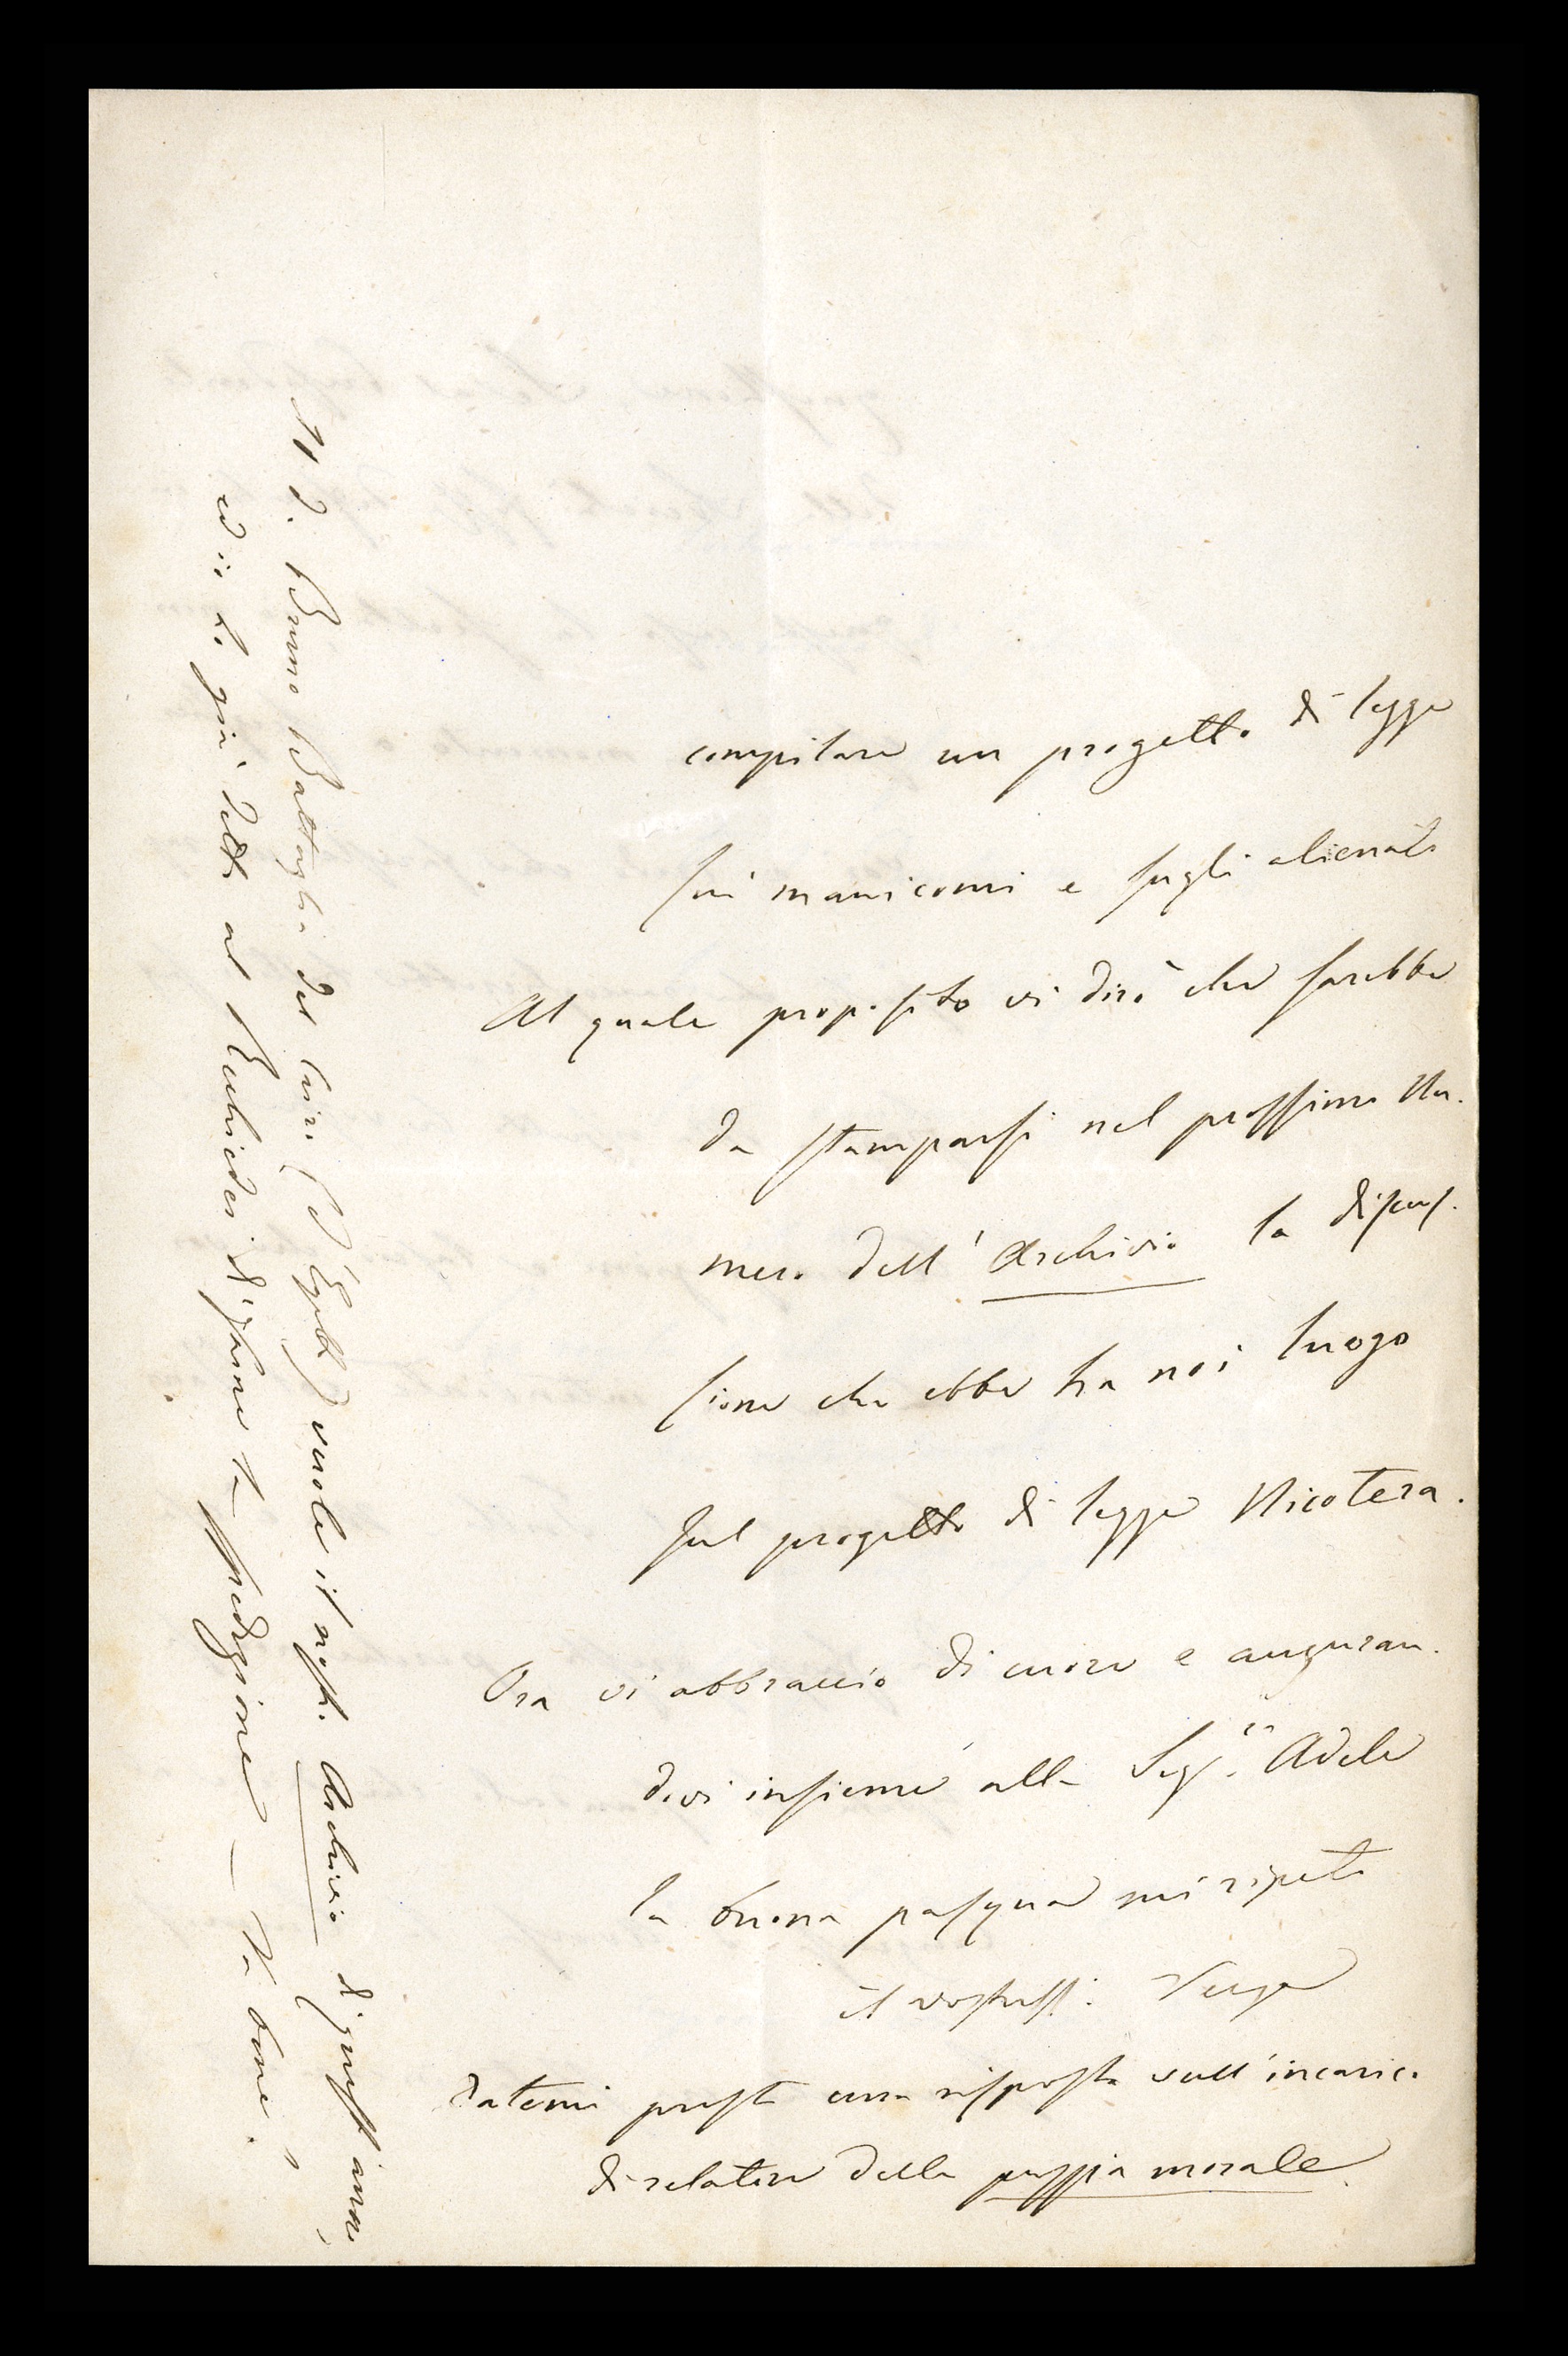 compilare un progetto di legge
sui manicomi e sugli alienati
Al quale proposito vi dirò che sarebbe
da stamparsi nel prossimo Nu-
mero dell'Archivio la discus-
sione che ebbe tra noi luogo
sul progetto di legge Nicotera.
Ora vi abbraccio di cuore e auguran-
dovi insieme alla Sig.ra Adele
la buona pasqua mi ripeto
il vostriss. Verga
Datemi presto una risposta sull'incarico
di relatore della pazzia morale
Il d. Bruno Battaglia del Cairo (d'Egitto) vuole il nostro Archivio di quest'anno,
ed io ho già detto al Rechiedei di farne la spedizione — Va bene?